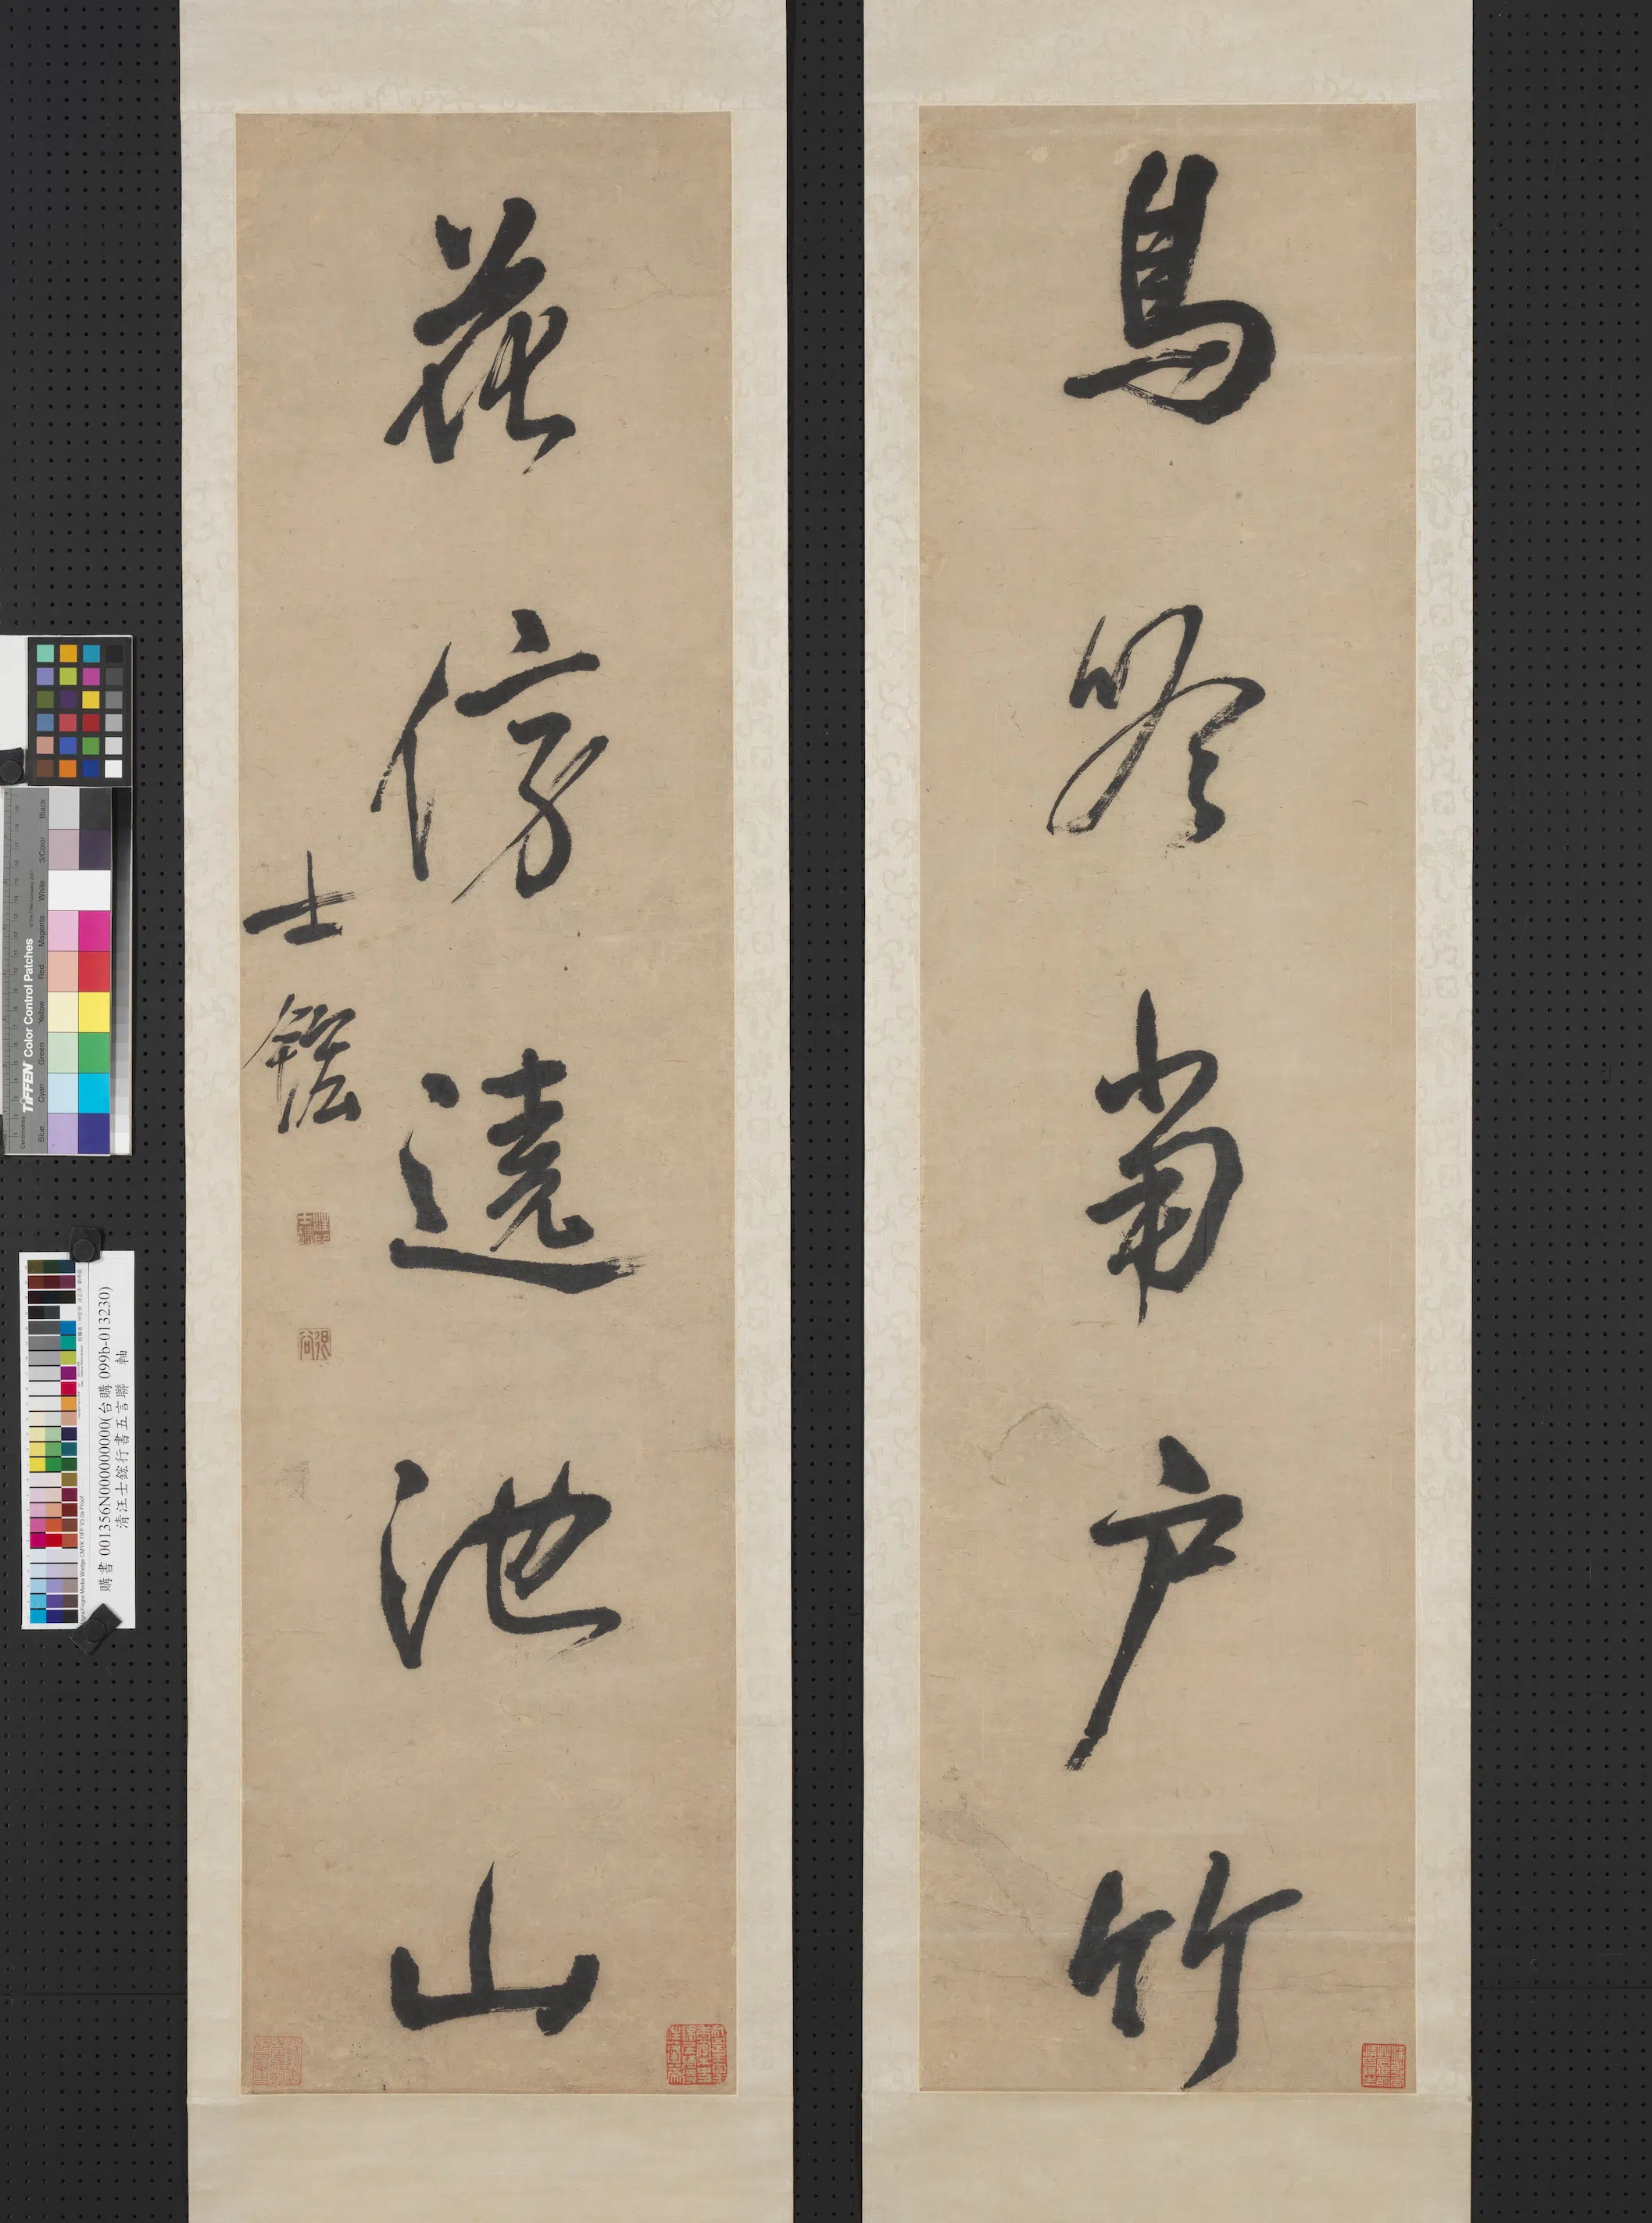 鳥吟當户竹
花傍遶池山
士鋐
退谷
TIFFEN Color Control Patches
Blue Cyan Green Yellow Red Magenta White 3/Color Black
購書 001356N000000000(台購 099b-013230)
清汪士鋐行書五言聯 軸